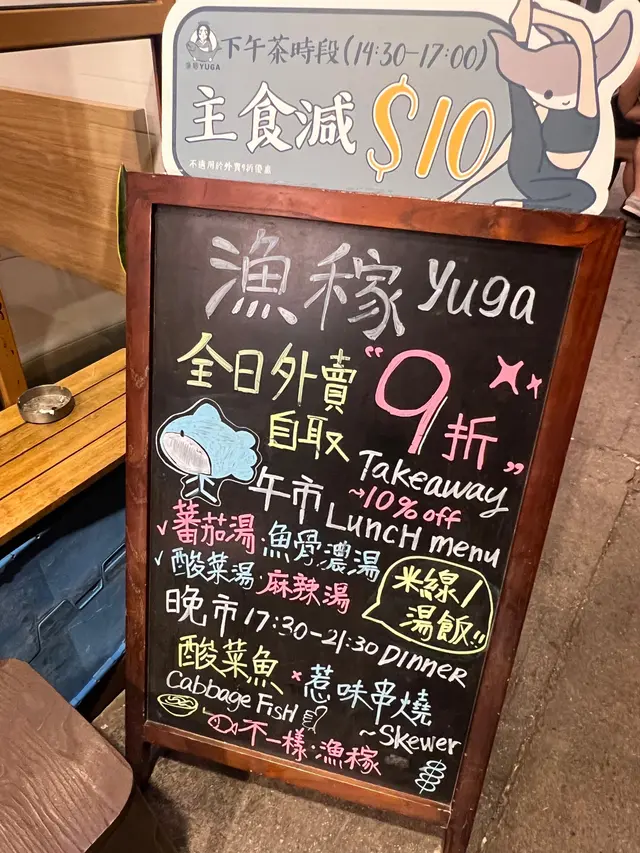 漁稼YUGA
下午茶時段(14:30-17:00)
主食減 $10
不適用於外賣9折優惠
漁稼 Yuga
全日外賣 "9折"
自取
Takeaway
~10% off
午市 LUNCH menu
✓蕃茄湯·魚骨濃湯
✓酸菜湯·麻辣湯
米線/
湯飯!!
晚市 17:30-21:30 DINNER
酸菜魚 × 惹味串燒
Cabbage FisH
~Skewer
不一樣·漁稼